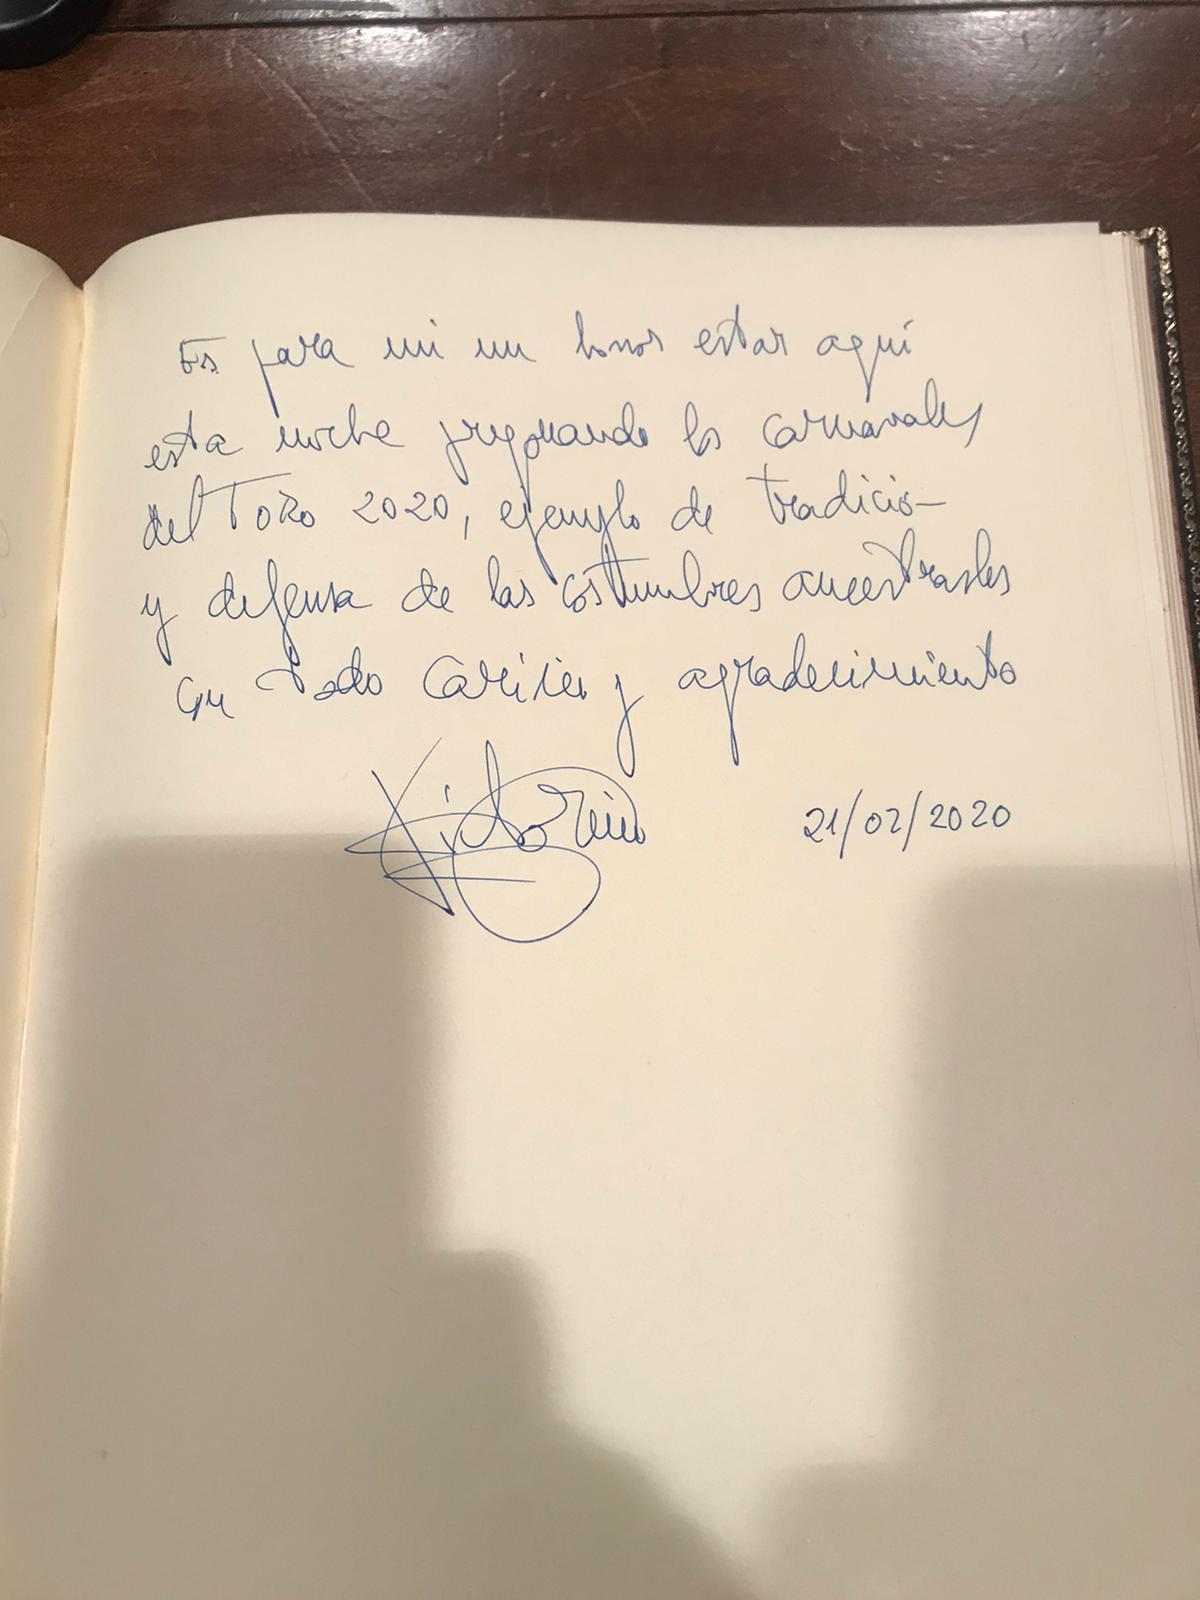 Es para mi un honor estar aquí
esta noche pregonando los carnavales
del Toro 2020, ejemplo de tradición
y defensa de las costumbres ancestrales
Con todo cariño y agradecimiento
Victorino
21/02/2020